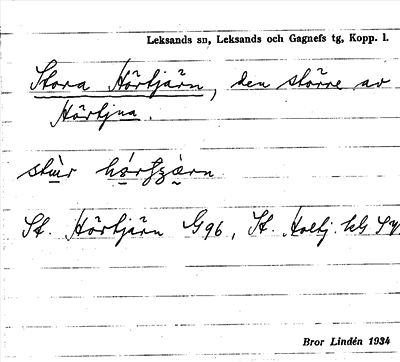 Leksands sn, Leksands och Gagnefs tg, Kopp. l.
Stora Hörtjärn, den större av
Hörtjna.
St. Hörtjärn G96, St.
Bror Lindén 1934